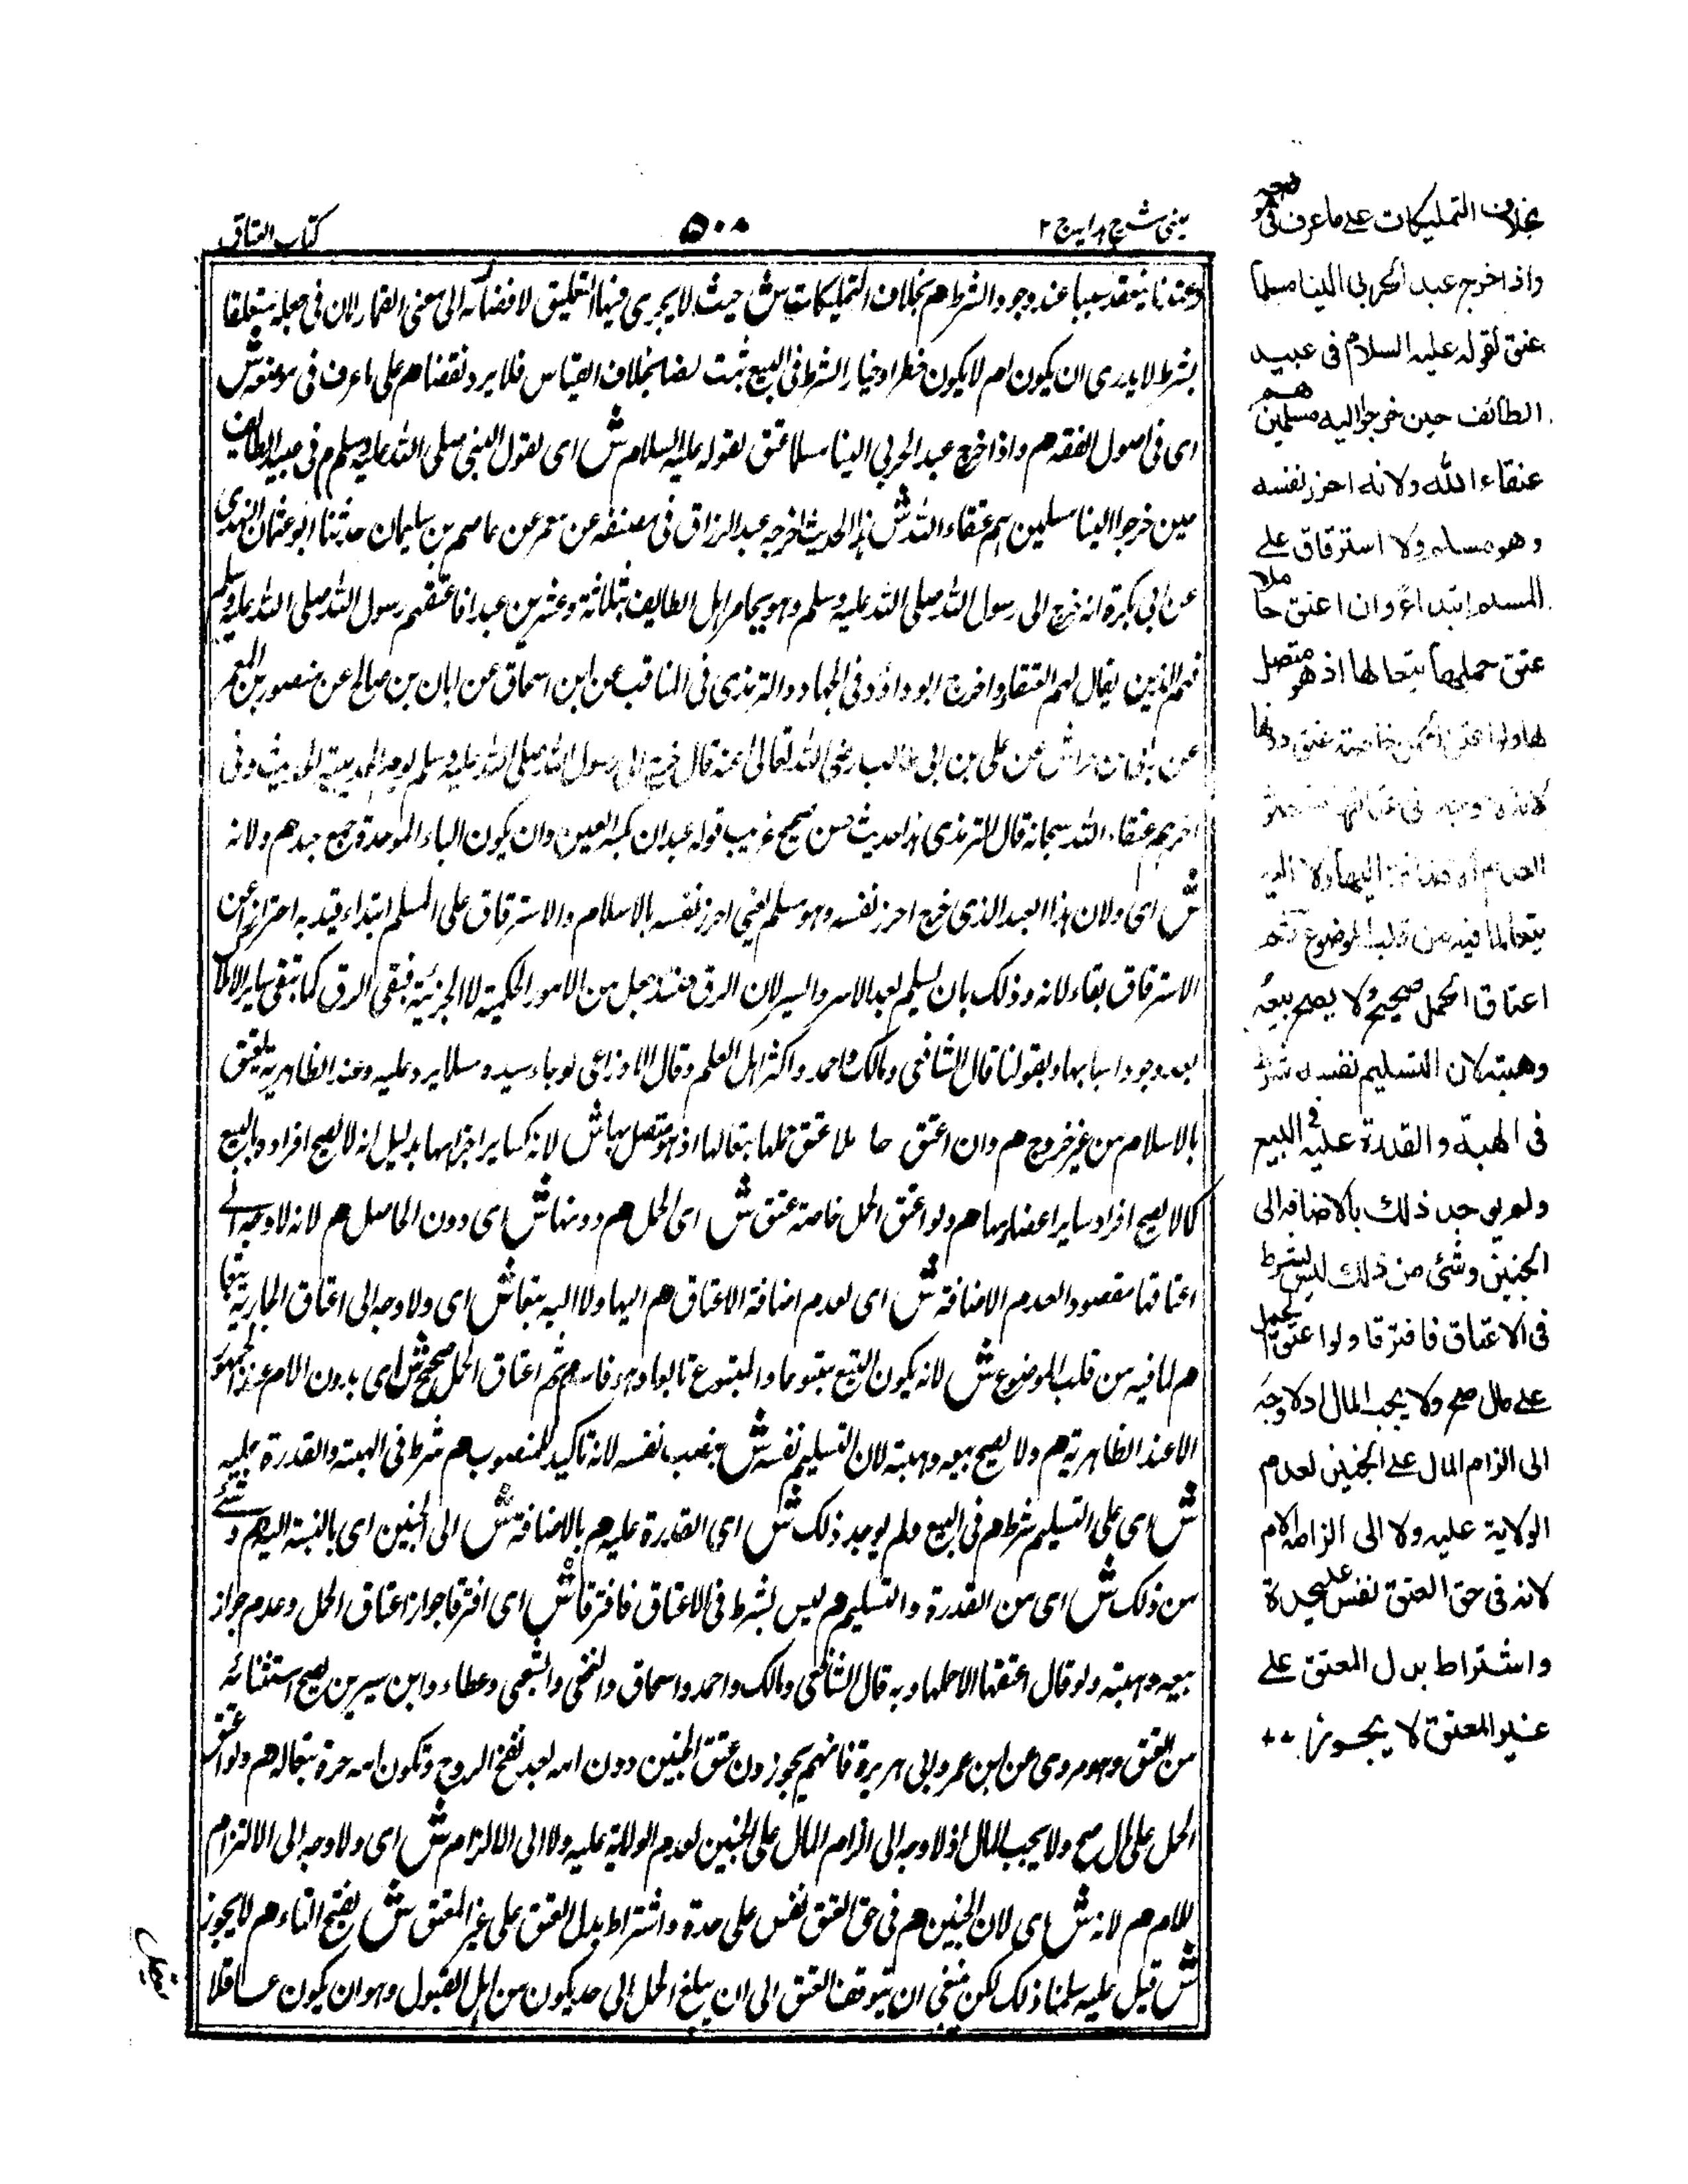 عینی شرح هدایه ج ۲
۵۰۰
كتاب العتاق
وعندنا ینعقد سببا عند وجود الشرط هم بخلاف التملیکات ش حیث لا یجری فیها التعلیق لافضائه الی معنی القمار لان فی جعله متعلقا
بشرط لا یدری ان یکون ام لا یکون خطرا وخیار الشرط فی البیع ثبت نصا بخلاف القیاس فلا یرد نقضا هم علی ما عرف فی موضعه ش
ای فی اصول الفقه هم واذا خرج عبد الحربی الینا مسلما عتق لقوله علیه السلام ش ای لقول النبی صلی الله علیه وسلم هم فی عبید الطائف
حین خرجوا الینا مسلمین هم عتقاء الله ش هذا الحدیث اخرجه عبد الرزاق فی مصنفه عن معمر عن عاصم بن سلیمان حدثنا ابو عثمان النهدی
عن ابی بکرة انه خرج الی رسول الله صلی الله علیه وسلم وهو یحاصر اهل الطایف بثلاثة وعشرین عبدا فاعتقهم رسول الله صلی الله علیه وسلم
فهم الذین یقال لهم العتقاء واخرج ابو داؤد فی الجهاد والترمذی فی المناقب عن ابن اسحاق عن ابان بن صالح عن منصور بن المعتمر
عن ربعی بن حراش عن علی بن ابی طالب رضی الله تعالی عنه قال خرج الی رسول الله صلی الله علیه وسلم یوم الحدیبیة الحدیث وفی
اخره هم عتقاء الله سبحانه قال الترمذی هذا حدیث حسن صحیح غریب قوله عبدان بکسر العین وان یکون الباء الموحدة جمع عبد هم ولانه
ش ای ولان هذا العبد الذی خرج احرز نفسه وهو مسلم یعنی احرز نفسه بالاسلام والاسترقاق علی المسلم ابتداء قید به احترازا عن
الاسترقاق بقاء لانه وذلک بان یسلم بعد الاسر والسیر لان الرق حینئذ جعل من الامور الحکمیة لا الجزئیة فبقی الرق کما تبقی سایر الاملاک
بعد وجود اسبابها وبقولنا قال الشافعی ومالک واحمد واکثر اهل العلم وقال الاوزاعی لو جاء سیده مسلما یرد علیه وعند الظاهریة یعتق
بالاسلام من غیر خروج هم وان اعتق حاملا عتق حملها تبعا لها اذ هو متصل بها ش لانه کسایر اجزائها بدلیل انه لا یصح افراده بالبیع
کما لا یصح افراد سایر اعضائها هم ولو اعتق الحمل خاصة عتق ش ای الحمل هم دونها ش ای دون الحامل هم لانه لا وجه الی
اعتاقها مقصودا لعدم الاضافة ش ای لعدم اضافة الاعتاق هم الیها ولا الیه تبعا ش ای ولا وجه الی اعتاق الجاریة تبعا
هم لما فیه من قلب الموضوع ش لانه یکون التبع متبوعا والمتبوع تابعا وهو فاسد هم ثم اعتاق الحمل صحیح ش ای بدون الام عند الجمهور
الا عند الظاهریة هم ولا یصح بیعه وهبته لان التسلیم نفسه ش بنصب نفسه لانه تاکید للمنصوب هم شرط فی الهبة والقدرة علیه
ش ای علی التسلیم شرط هم فی البیع ولم یوجد ذلک ش ای القدرة علیه هم بالاضافة ش الی الجنین ای بالنسبة الیه هم وشئ
من ذلک ش ای من القدرة والتسلیم هم لیس بشرط فی الاعتاق فافترقا ش ای افترقا جواز اعتاق الحمل وعدم جواز
بیعه وهبته ولو قال اعتقها الا حملها وبه قال الشافعی ومالک واحمد واسحاق والنخعی والشعبی وعطاء وابن سیرین یصح استثنائه
من العتق وهو مروی عن ابن عمر وابی هریرة فانهم یجوزون عتق الجنین دون امه بعد نفخ الروح وتکون امه حرة تبعا له هم ولو اعتق
الحمل علی مال صح ولا یجب المال اذ لا وجه الی الزام المال علی الجنین لعدم الولایة علیه ولا الی الزام الام ش ای ولا وجه الی الالتزام
للام هم لانه ش ای لان الجنین هم فی حق العتق نفس علی حدة واشتراط بدل العتق علی غیر المعتق ش بفتح التاء هم لا یجوز
ش قیل علیه سلمنا ذلک لکن ینبغی ان یتوقف العتق الی ان یبلغ الحمل الی حد یکون من اهل القبول وهو ان یکون عاقلا
بخلاف التملیکات علی ما عرف فی موضعه
واذا خرج عبد الحربی الینا مسلما
عتق لقوله علیه السلام فی عبید
الطائف حین خرجوا الیه مسلمین هم
عتقاء الله ولانه احرز نفسه
وهو مسلم ولا استرقاق علی
المسلم ابتداءً وان اعتق حاملا
عتق حملها تبعا لها اذ هو متصل
بها ولو اعتق الحمل خاصة عتق دونها
لانه لا وجه الی اعتاقها مقصودا
لعدم الاضافة الیها ولا الیه
تبعا لما فیه من قلب الموضوع ثم
اعتاق الحمل صحیح ولا یصح بیعه
وهبته لان التسلیم نفسه شرط
فی الهبة والقدرة علیه فی البیع
ولم یوجد ذلك بالاضافة الی
الجنین وشئ من ذلك لیس بشرط
فی الاعتاق فافترقا ولو اعتق الحمل
علی مال صح ولا یجب المال اذ لا وجه
الی الزام المال علی الجنین لعدم
الولایة علیه ولا الی الزام الام
لانه فی حق العتق نفس علیحدة
واشتراط بدل العتق علی
غیر المعتق لا یجوز